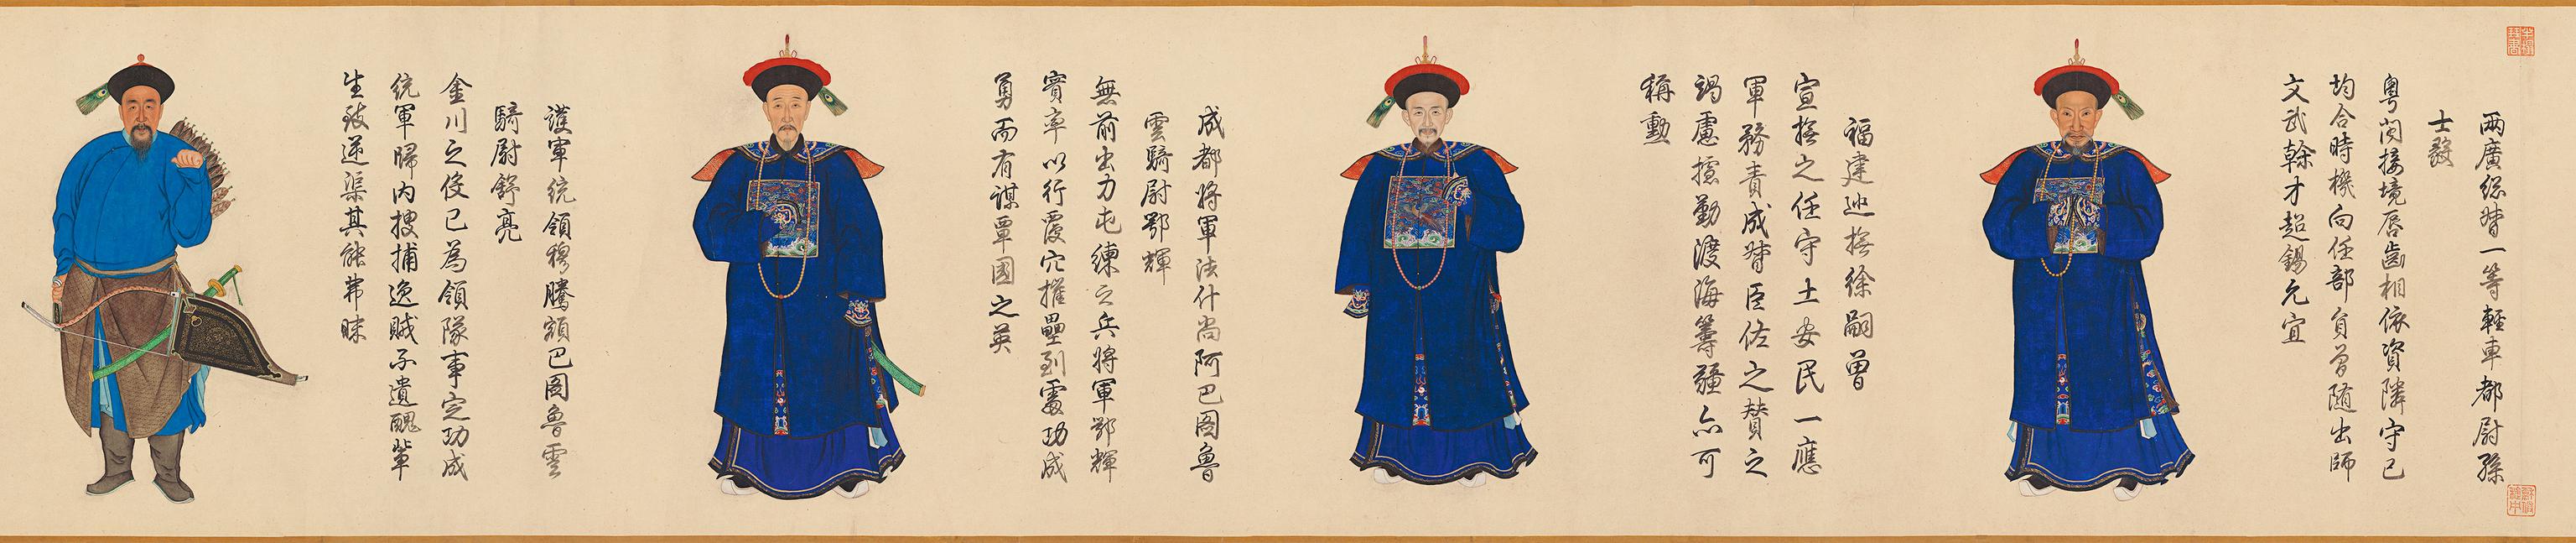 兩廣總督一等輕車都尉孫
士毅
粵閩接境唇齒相依資隣守已
均合時機向任部負曾隨出師
文武幹才超錫允宜
福建巡撫徐嗣曾
宣撫之任守土安民一應
軍務責成督臣佐之贊之
竭慮擄勤渡海籌疆亦可
稱勳
成都將軍法什尚阿巴圖魯
雲騎尉鄂輝
無前出力屯練之兵將軍鄂輝
實率以行覆穴摧壘到處功成
勇而有謀覃國之英
護軍統領穆騰額巴圖魯雲
騎尉舒亮
金川之役已為領隊事定功成
統軍歸內搜捕逸賊孑遺醜輩
生致逆渠其能弗昧